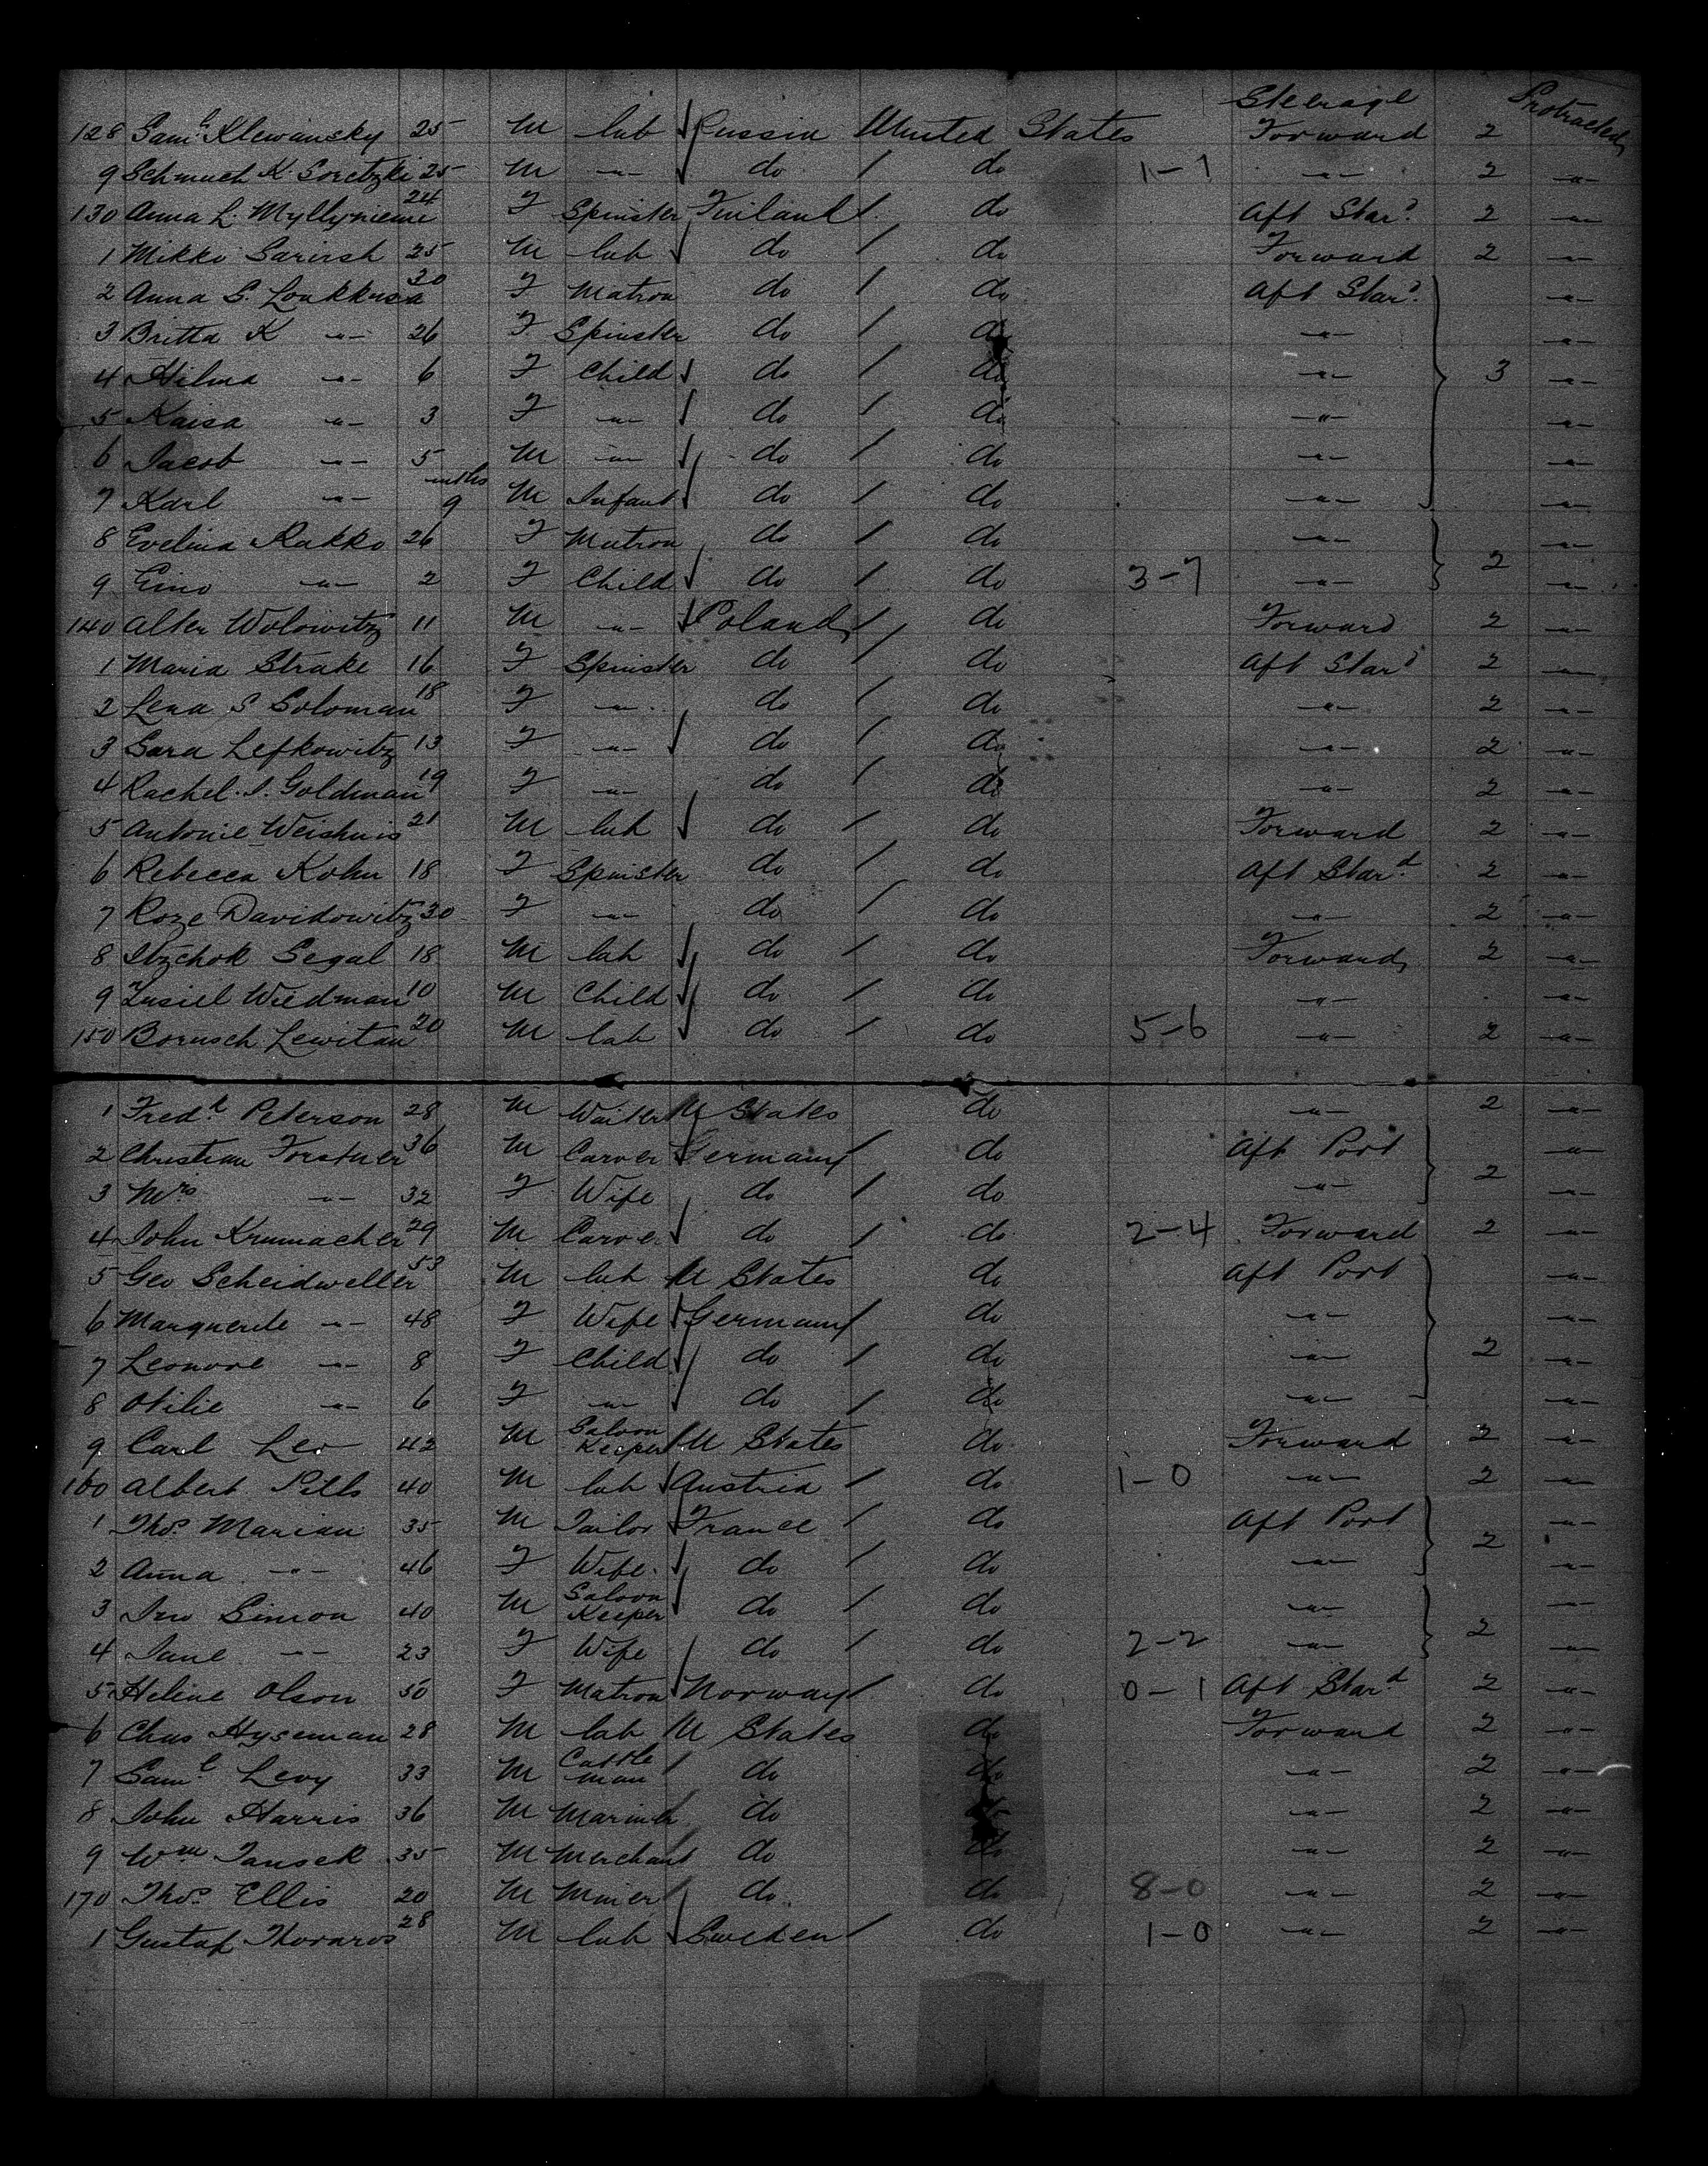 Steerage Protracted
128 Saml. Klewansky 25 M lab Russia United States Forward 2
9 Schmuch K. Soretzki 25 M -"- do do 1-1 -"- 2 -"-
130 Anna L. Myllyniemi 24 F Spinster Finland do Aft Stard. 2 -"-
1 Mikko 25 M lab do do Forward 2 -"-
2 Anna S. Loukkusa 30 F Matron do do Aft Stard. -"-
3 Britta K -"- 26 F Spinster do do -"- -"-
4 Hilma -"- 6 F Child do do -"- 3 -"-
5 Kaisa -"- 3 F -"- do do -"- -"-
6 Jacob -"- 5 M -"- do do -"- -"-
7 Karl -"- mths 9 M Infant do do -"- -"-
8 Evelina Rakko 26 F Matron do do -"- -"-
9 Eino -"- 2 F Child do do 3-7 -"- 2 -"-
140 Alter Wolowitz 11 M -"- Poland do Forward 2 -"-
1 Maria Strake 16 F Spinster do do Aft Stard 2 -"-
2 Lena S Soloman 18 F -"- do do -"- 2 -"-
3 Sara Lefkowitz 13 F -"- do do -"- 2 -"-
4 Rachel. I. Goldman 19 F -"- do do -"- 2 -"-
5 Antonie Weishuis 21 M lab do do Forward 2 -"-
6 Rebecca Kohn 18 F Spinster do do Aft Stard. 2 -"-
7 Roze Davidowitz 30 F -"- do do -"- 2 -"-
8 Itzchok Segal 18 M lab do do Forward 2 -"-
9 Zusiel Wiedman 10 M Child do do -"- -"-
150 Borusch Lewitan 20 M lab do do 5-6 -"- 2 -"-
1 Fredk. Peterson 28 M Waiter U States do -"- 2 -"-
2 Christian Forstner 36 M Carver Germany do Aft Port -"-
3 Mrs -"- 32 F Wife do do -"- 2 -"-
4 John Krumacher 29 M Carver do do 2-4 Forward 2 -"-
5 Geo Scheidweller 53 M lab U States do Aft Port -"-
6 Marguerite -"- 48 F Wife Germany do -"- -"-
7 Leonore -"- 8 F Child do do -"- 2 -"-
8 Otilie -"- 6 F -"- do do -"- -"-
9 Carl Leo 42 M Saloon Keeper U States do Forward 2 -"-
160 Albert Pills 40 M lab Austria do 1-0 -"- 2 -"-
1 Thos. Marian 35 M Tailor France do Aft Port -"-
2 Anna -"- 46 F Wife do do -"- 2 -"-
3 Jno Simon 40 M Saloon Keeper do do -"- -"-
4 Jane -"- 23 F Wife do do 2-2 -"- 2 -"-
5 Heline Olson 50 F Matron Norway do 0-1 Aft Stard 2 -"-
6 Chas Hyseman 28 M lab U States do Forward 2 -"-
7 Saml. Levy 33 M Cattle man do do -"- 2 -"-
8 John Harris 36 M Mariner do do -"- 2 -"-
9 Wm Jansek 35 M Merchant do do -"- 2 -"-
170 Thos. Ellis 20 M Miner do do 8-0 -"- 2 -"-
1 Gustaf 28 M lab Sweden do 1-0 -"- 2 -"-